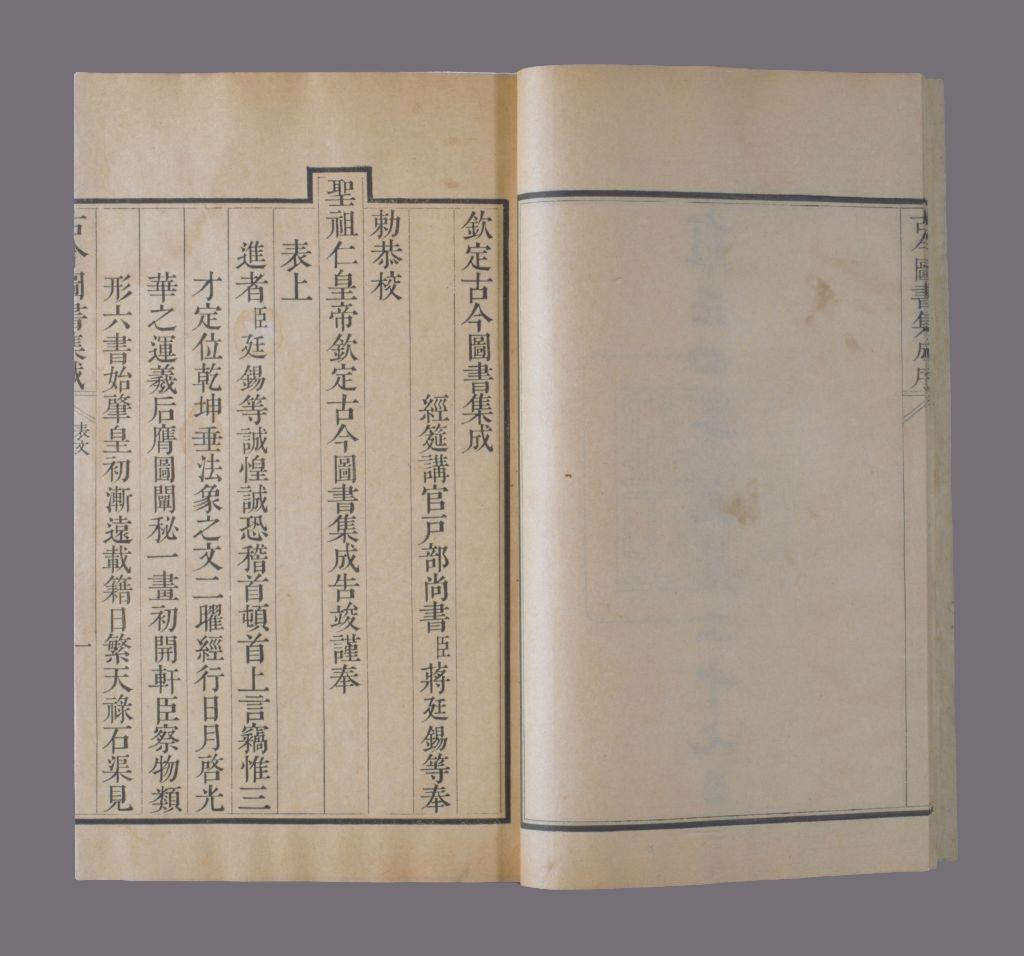 古今圖書集成序
欽定古今圖書集成
經筵講官戶部尚書臣蔣廷錫等奉
勅恭校
聖祖仁皇帝欽定古今圖書集成告竣謹奉
表上
進者臣廷錫等誠惶誠恐稽首頓首上言竊惟三
才定位乾坤垂法象之文二曜經行日月啓光
華之運羲后膺圖闡秘一畫初開軒臣察物類
形六書始肇皇初漸遠載籍日繁天祿石渠見
古今圖書集成
表文
一